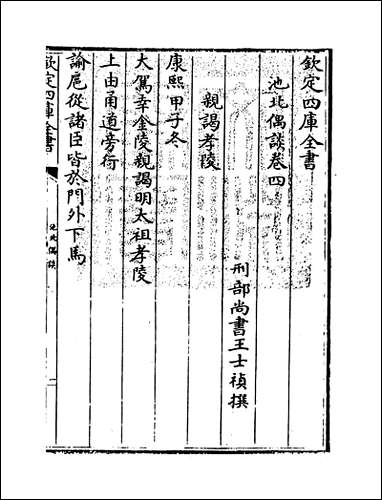 欽定四庫全書
池北偶談卷四
刑部尚書王士禎撰
親謁孝陵
康熙甲子冬
大駕幸金陵親謁明太祖孝陵
上由甬道旁行
諭扈從諸臣皆於門外下馬
欽定四庫全書
池北偶談